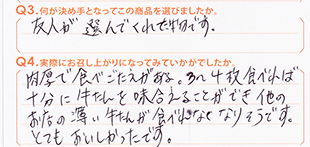 Q3.何が決め手となってこの商品を選びましたか。
友人が選んでくれた物です。
Q4.実際にお召し上がりになってみていかがでしたか。
肉厚で食べごたえがある。3〜4枚食べれば
十分に牛たんを味合えることができ他の
お店の薄い牛たんが食べれなくなりそうです。
とてもおいしかったです。